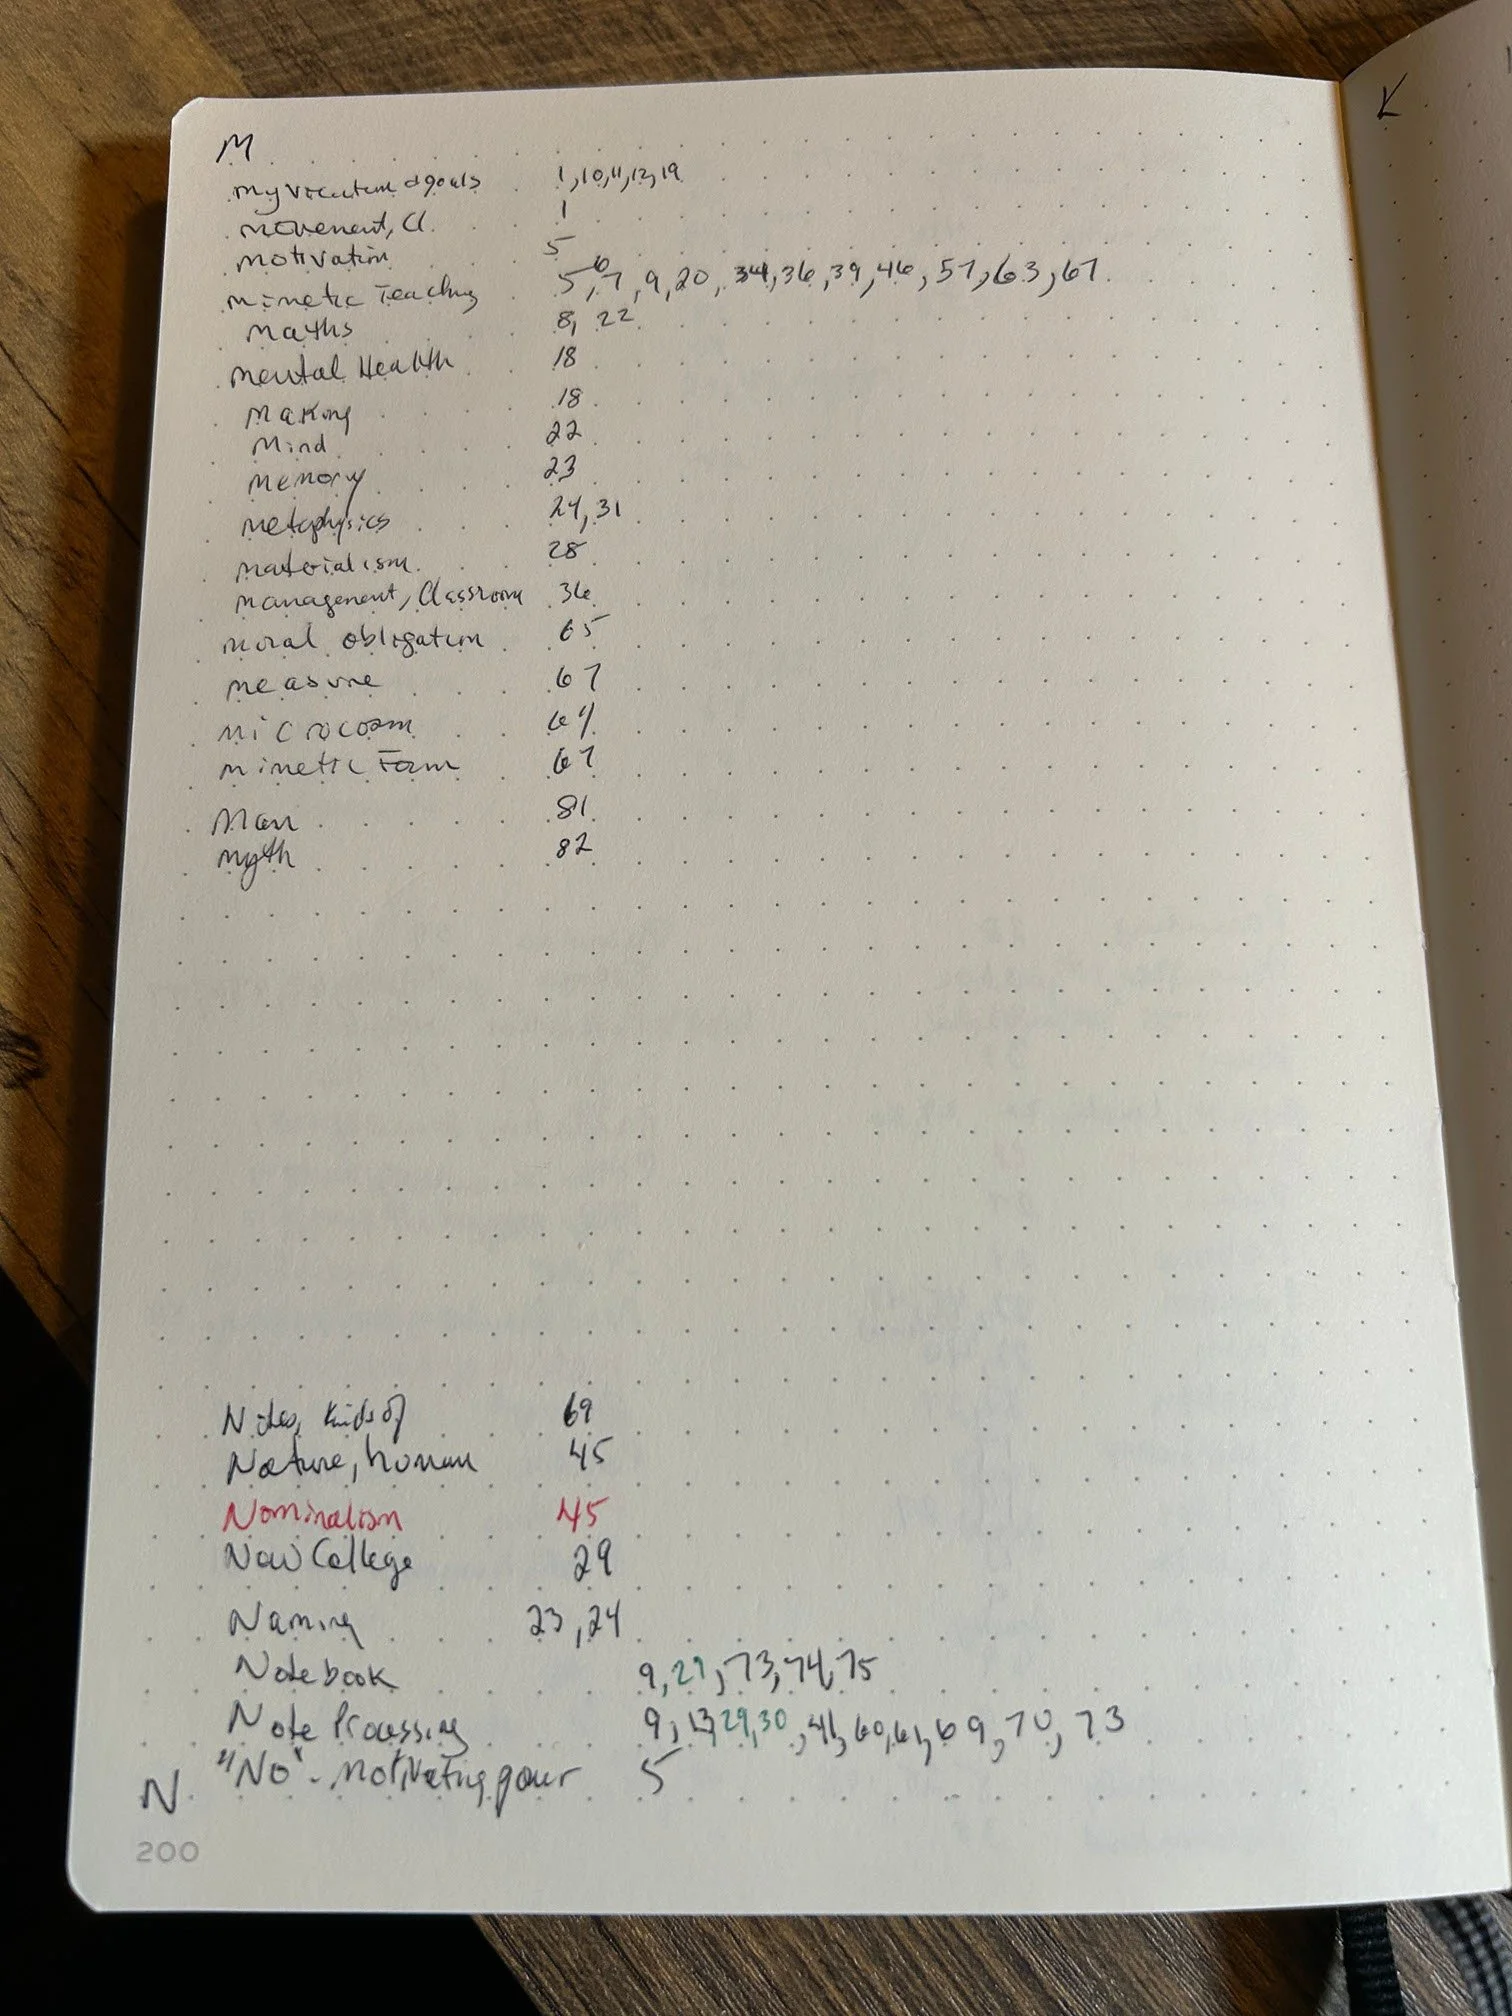 M
my vocation & goals 1,10,11,12,19
movement, Cl 1
motivation 5
mimetic Teaching 5,6,7,9,20,34,36,39,46,57,63,67
maths 8, 22
mental Health 18
making 18
mind 22
memory 23
metaphysics 24,31
materialism 28
management, Classroom 36
moral obligation 65
measure 67
microcosm 64
mimetic Form 67
Man 81
myth 82
Notes, kinds of 69
Nature, human 45
Nominalism 45
New College 29
Naming 23,24
Notebook 9,29,73,74,75
Note Processing 9,13,29,30,41,60,61,69,70,73
"NO" - motivating power 5
N
200